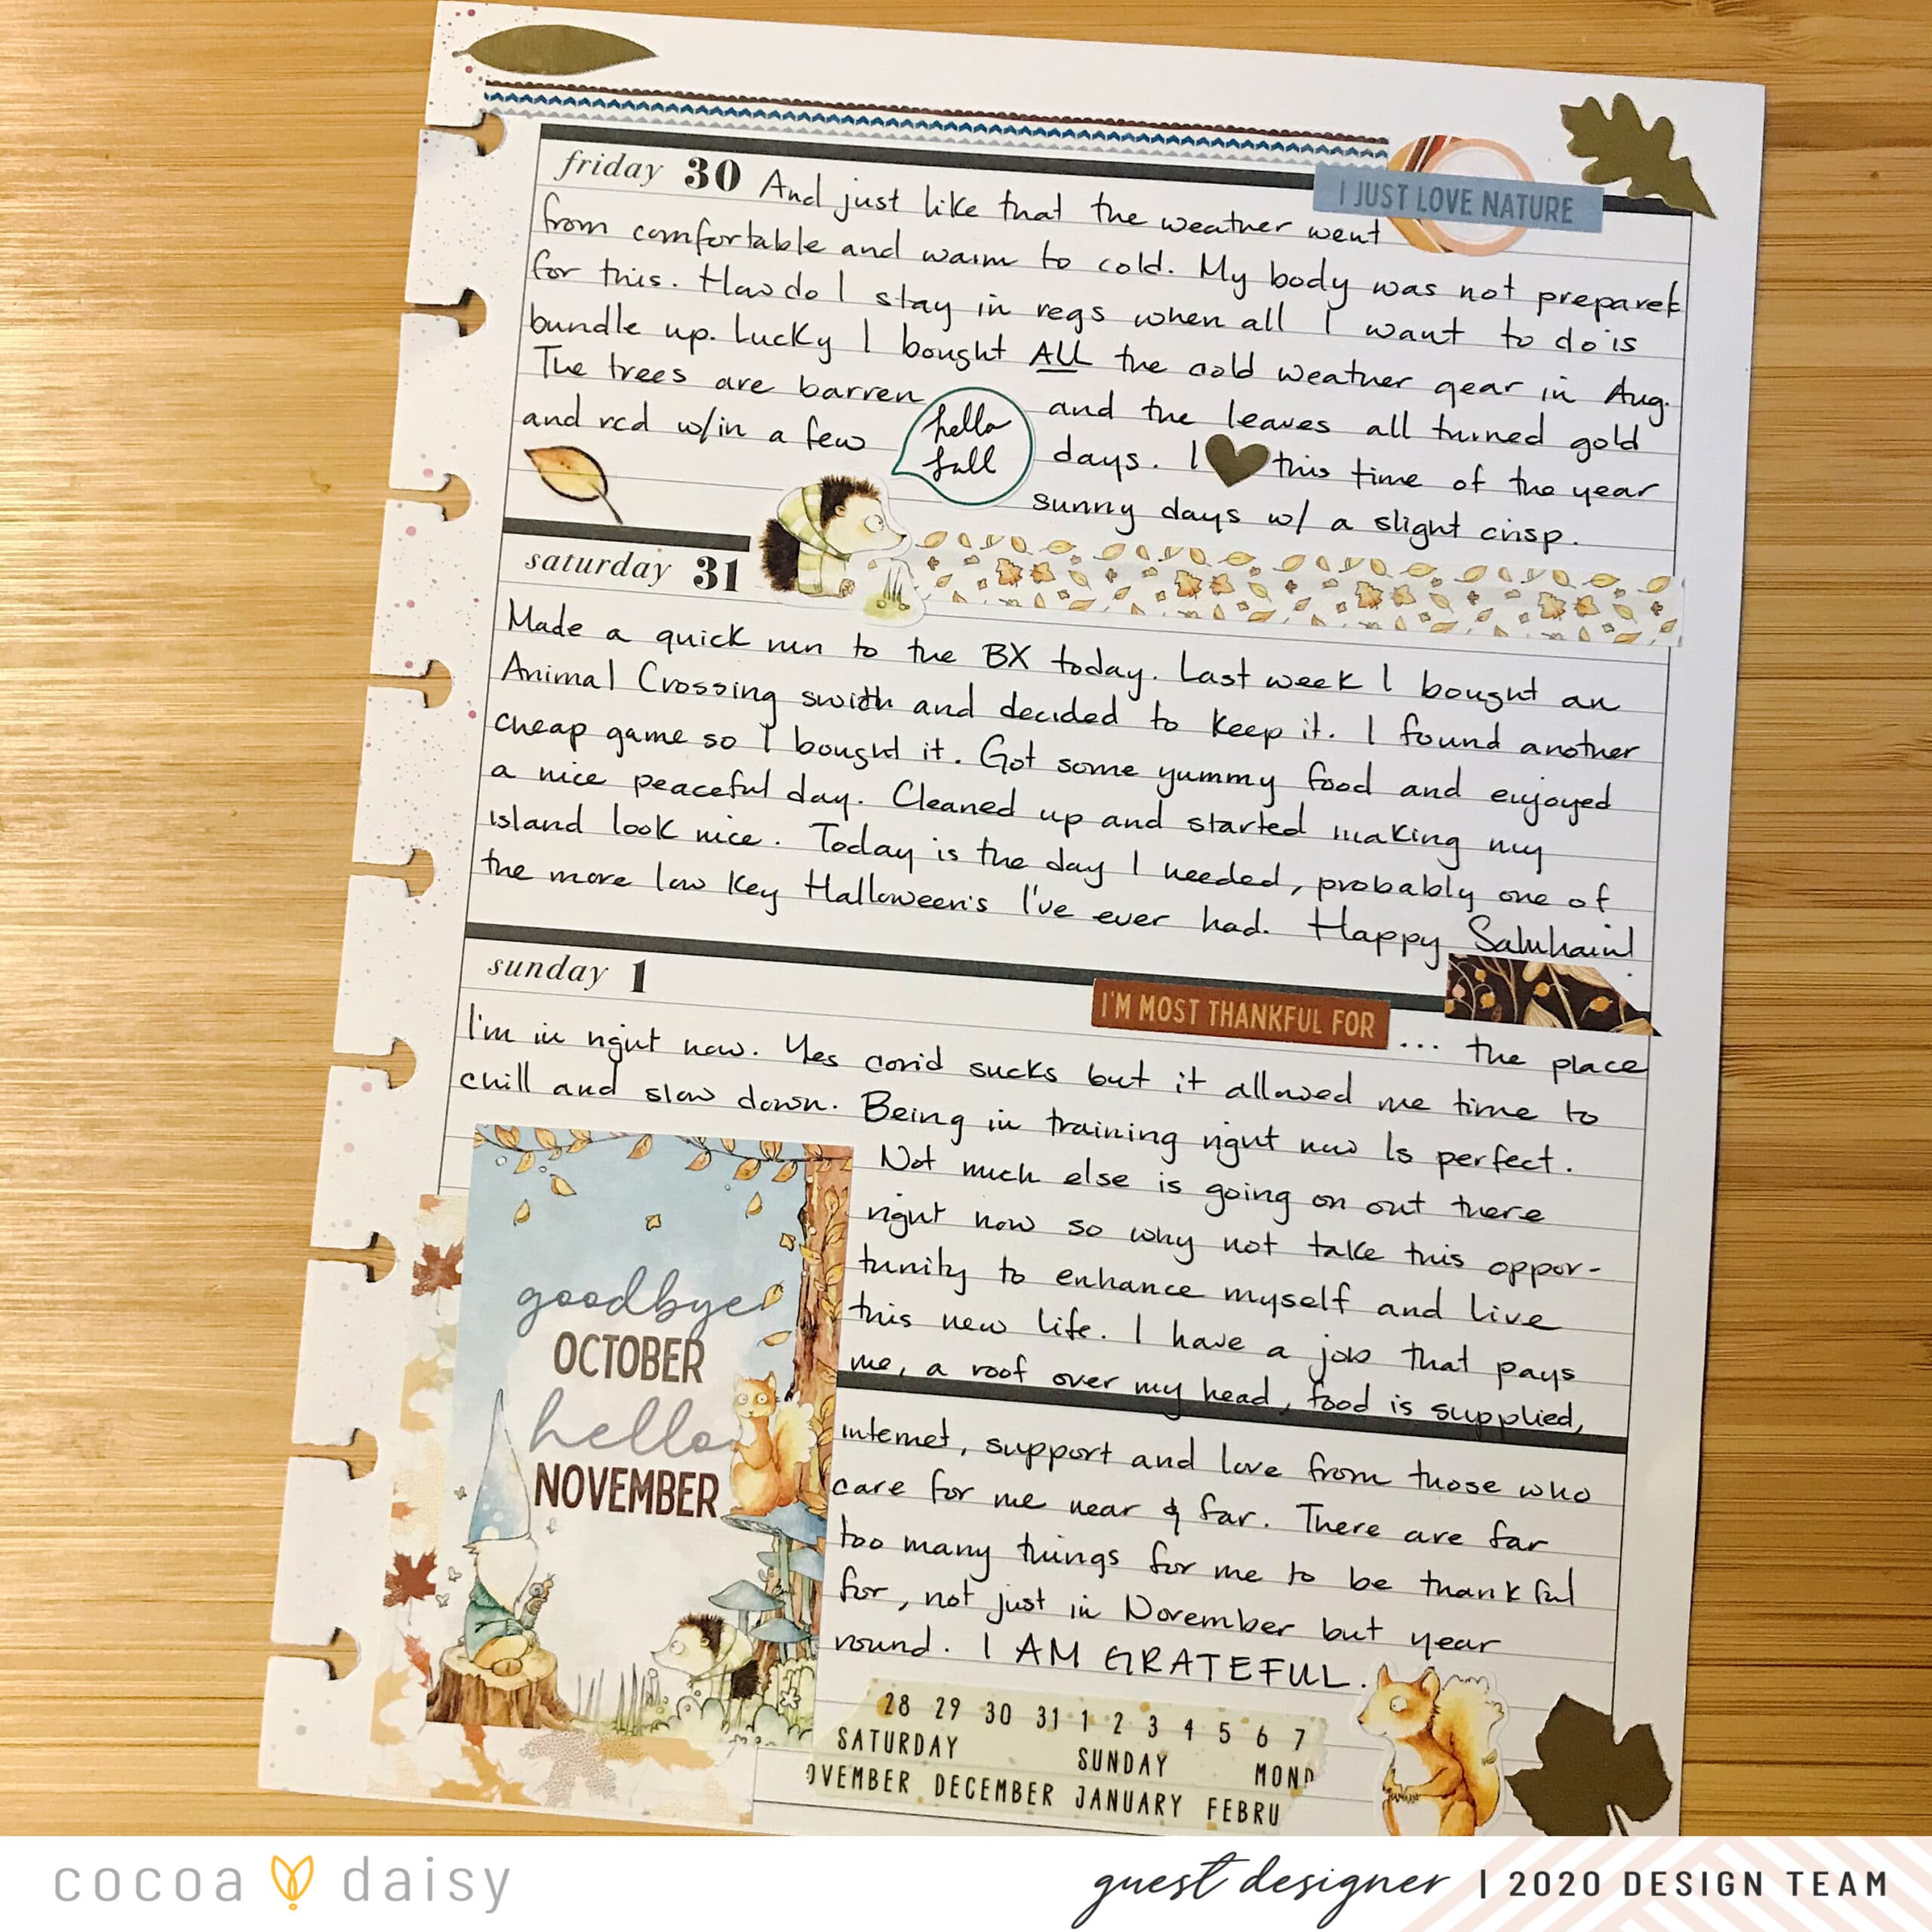 friday 30 And just like that the weather went
I JUST LOVE NATURE
from comfortable and warm to cold. My body was not prepared
for this. How do I stay in regs when all I want to do is
bundle up. Lucky I bought ALL the cold weather gear in Aug.
The trees are barren and the leaves all turned gold
and red w/in a few days. I ♥ this time of the year
hello
fall
sunny days w/ a slight crisp.
saturday 31
Made a quick run to the BX today. Last week I bought an
Animal Crossing swith and decided to keep it. I found another
cheap game so I bought it. Got some yummy food and enjoyed
a nice peaceful day. Cleaned up and started making my
island look nice. Today is the day I needed, probably one of
the more low key Halloween's I've ever had. Happy Samhain!
sunday 1
I'M MOST THANKFUL FOR ... the place
I'm in right now. Yes covid sucks but it allowed me time to
chill and slow down. Being in training right now Is perfect.
Not much else is going on out there
right now so why not take this oppor-
tunity to enhance myself and live
this new life. I have a job that pays
me, a roof over my head, food is supplied,
internet, support and love from those who
care for me near & far. There are far
too many things for me to be thankful
for, not just in November but year
round. I AM GRATEFUL.
goodbye
OCTOBER
hello
NOVEMBER
28 29 30 31 1 2 3 4 5 6 7
SATURDAY SUNDAY MOND
OVEMBER DECEMBER JANUARY FEBRU
cocoa daisy
guest designer | 2020 DESIGN TEAM